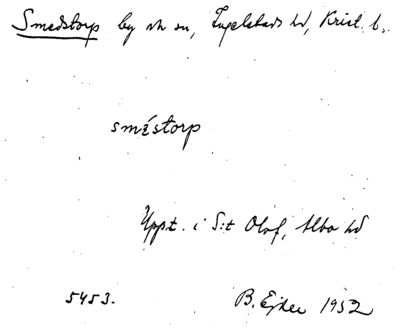 Smedstorp by ok sn, Ingelstads hd, Krist. l.
sméstorp
Uppt. i S:t Olof, Albo hd
5453.
B. Ejder 1952